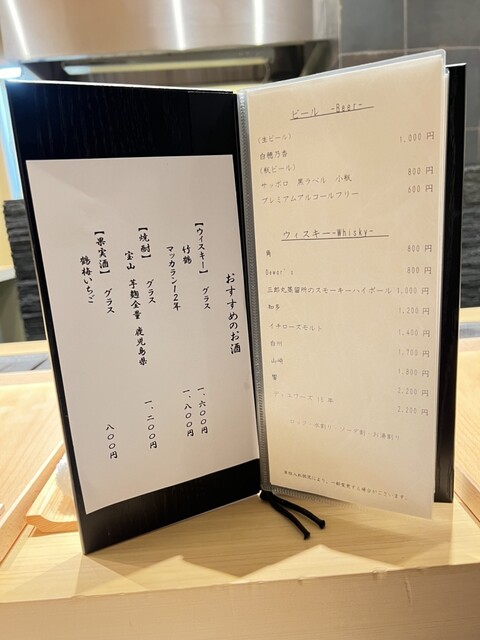 おすすめのお酒
【ウィスキー】 グラス
竹鶴 一、六〇〇円
マッカラン12年 一、八〇〇円
【焼酎】 グラス
宝山 芋麹全量 鹿児島県 一、二〇〇円
【果実酒】 グラス
鶴梅いちご 八〇〇円
ビール -Beer-
(生ビール) 1,000 円
白穂乃香
(瓶ビール) 800 円
サッポロ 黒ラベル 小瓶 600 円
プレミアムアルコールフリー
ウィスキー-Whisky-
角 900 円
Dewar's 800 円
三郎丸蒸留所のスモーキーハイボール 1,000 円
知多 1,200 円
イチローズモルト 1,400 円
白州 1,700 円
山崎 1,800 円
響 2,200 円
デュワーズ 15 年 2,200 円
ロック・水割り・ソーダ割・お湯割り